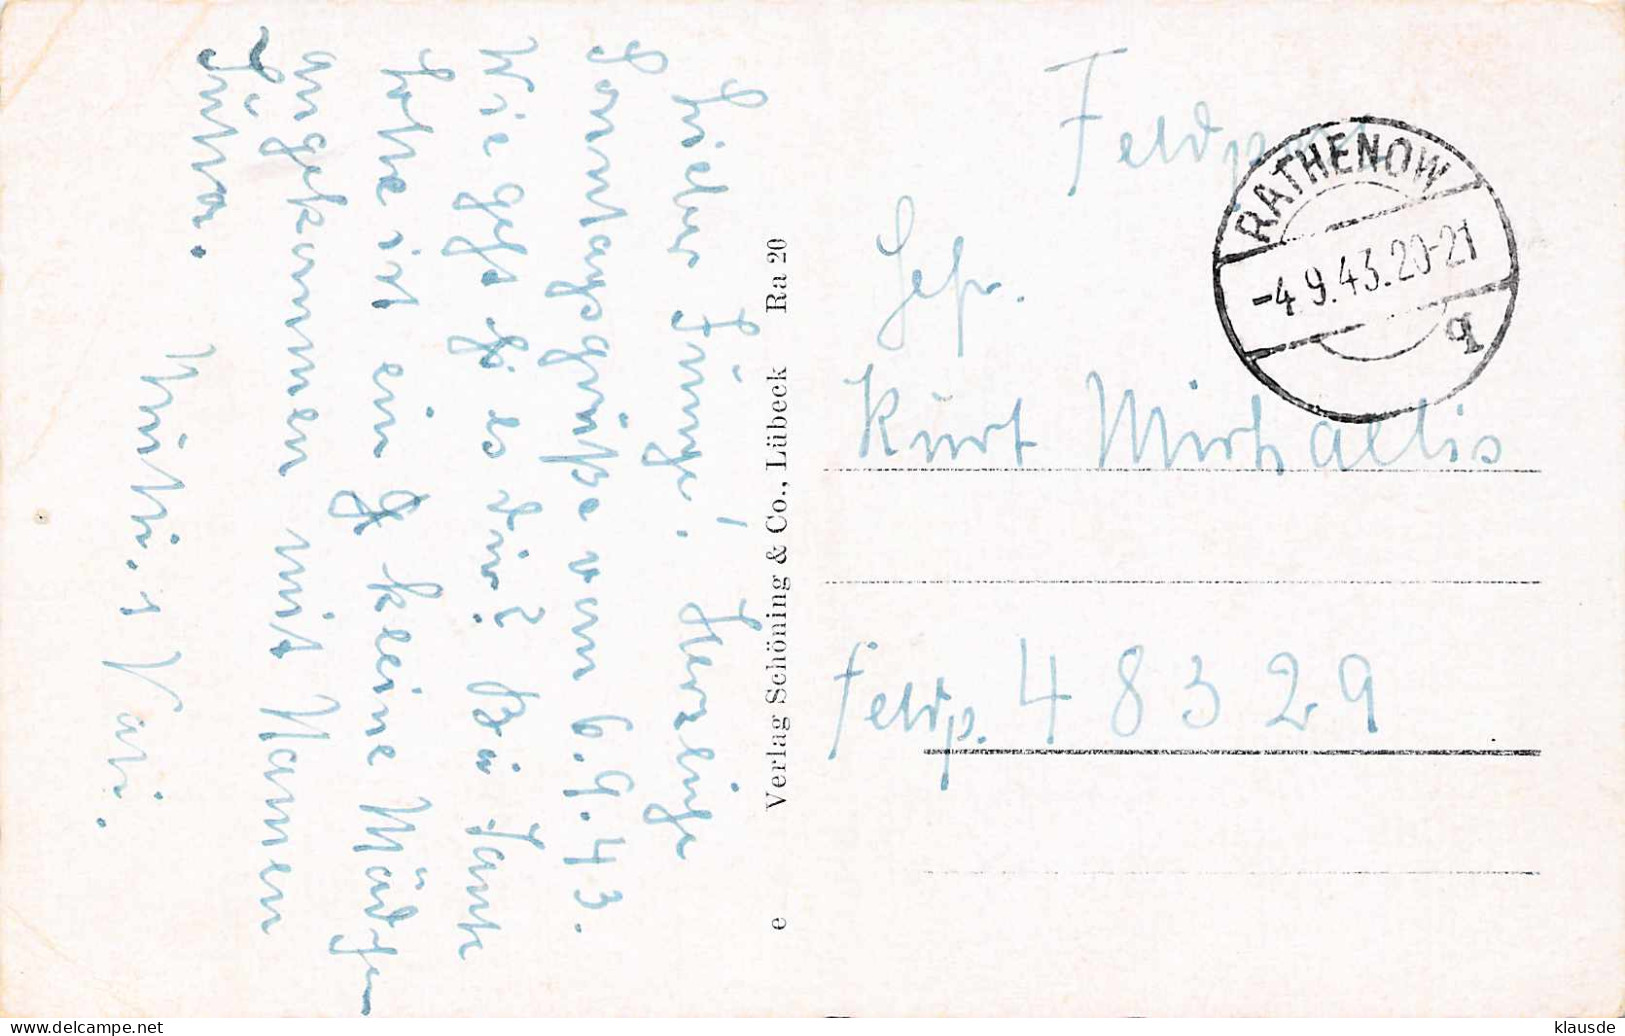 Lieber Junge! Herzliche
Sonntagsgrüße vom 6.9.43.
Wie geht es dir? Bei Tante
Lotte ist ein kleine Mädchen
angekommen mit Namen
Jutta.
Mutti. u Vati.
e Verlag Schöning & Co., Lübeck Ra 20
Feldpost
RATHENOW
-4.9.43.20-21
q
Gefr.
Kurt Michallis
Feldp. 48329
klausde